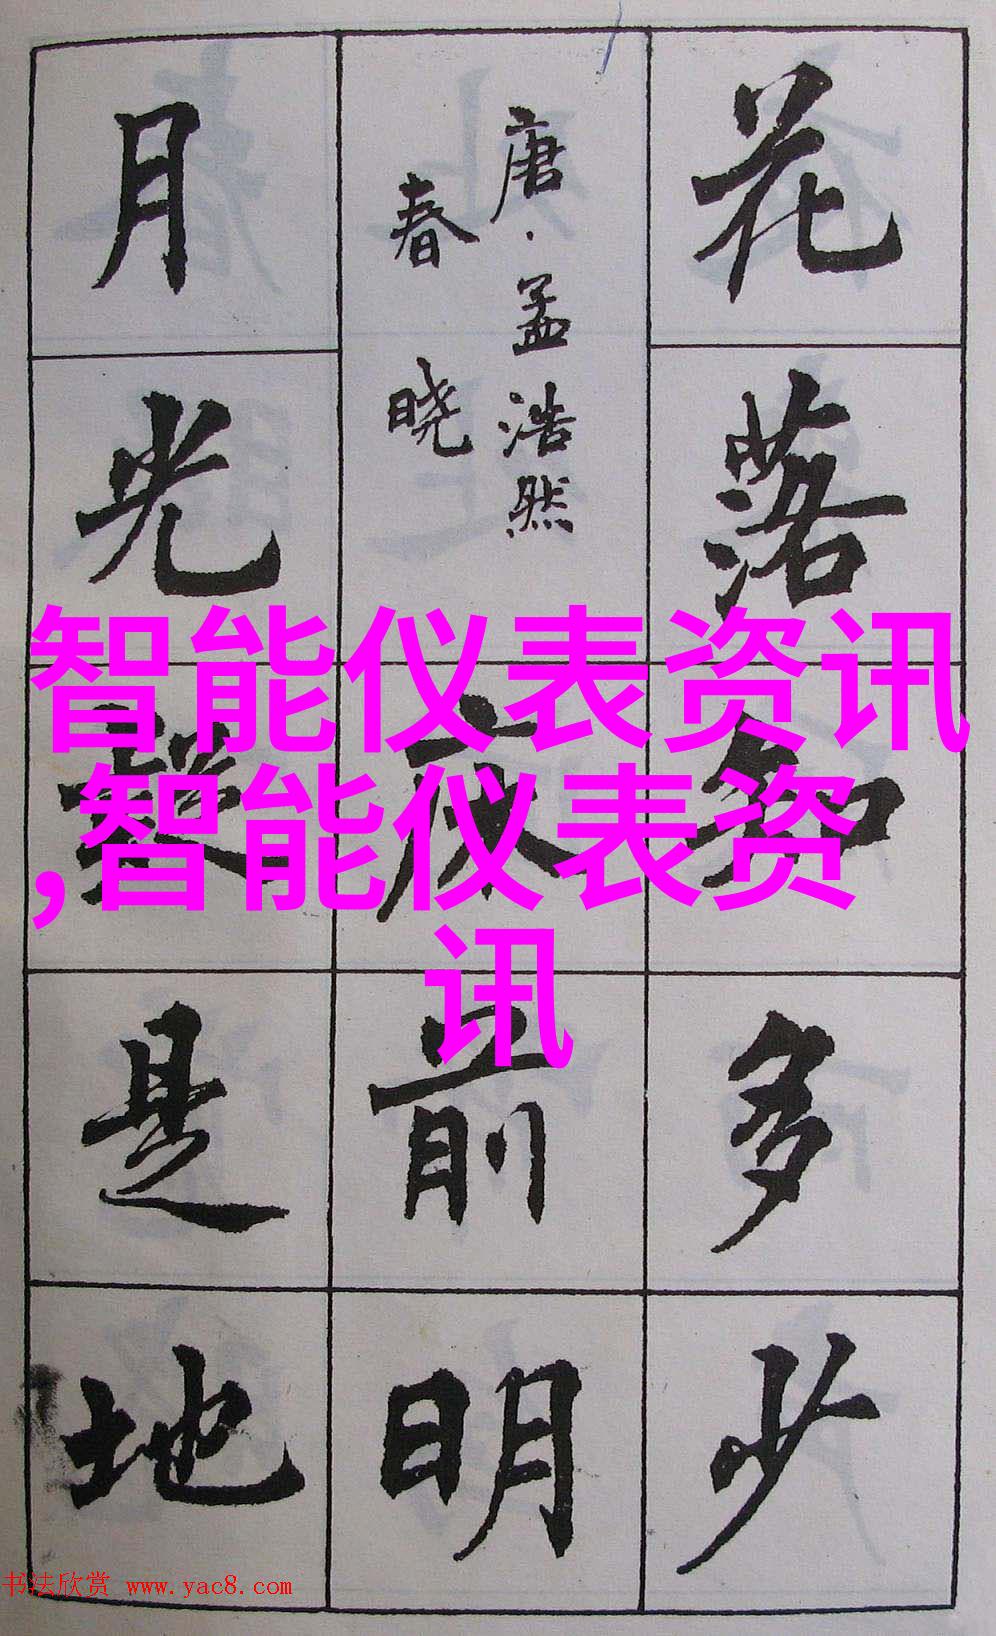 花落知多少
唐·孟浩然
春晓
床前明
月光疑是地
智能仪表资讯
,智能仪表资
讯
书法欣赏 www.yac8.com